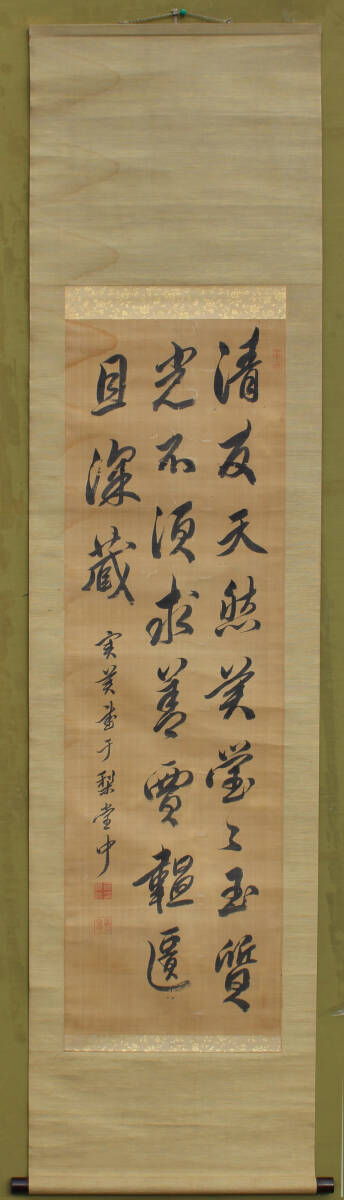 清友天然美瑩〻玉質
光不須求善賈韞匵
且深蔵
実美書于梨堂中